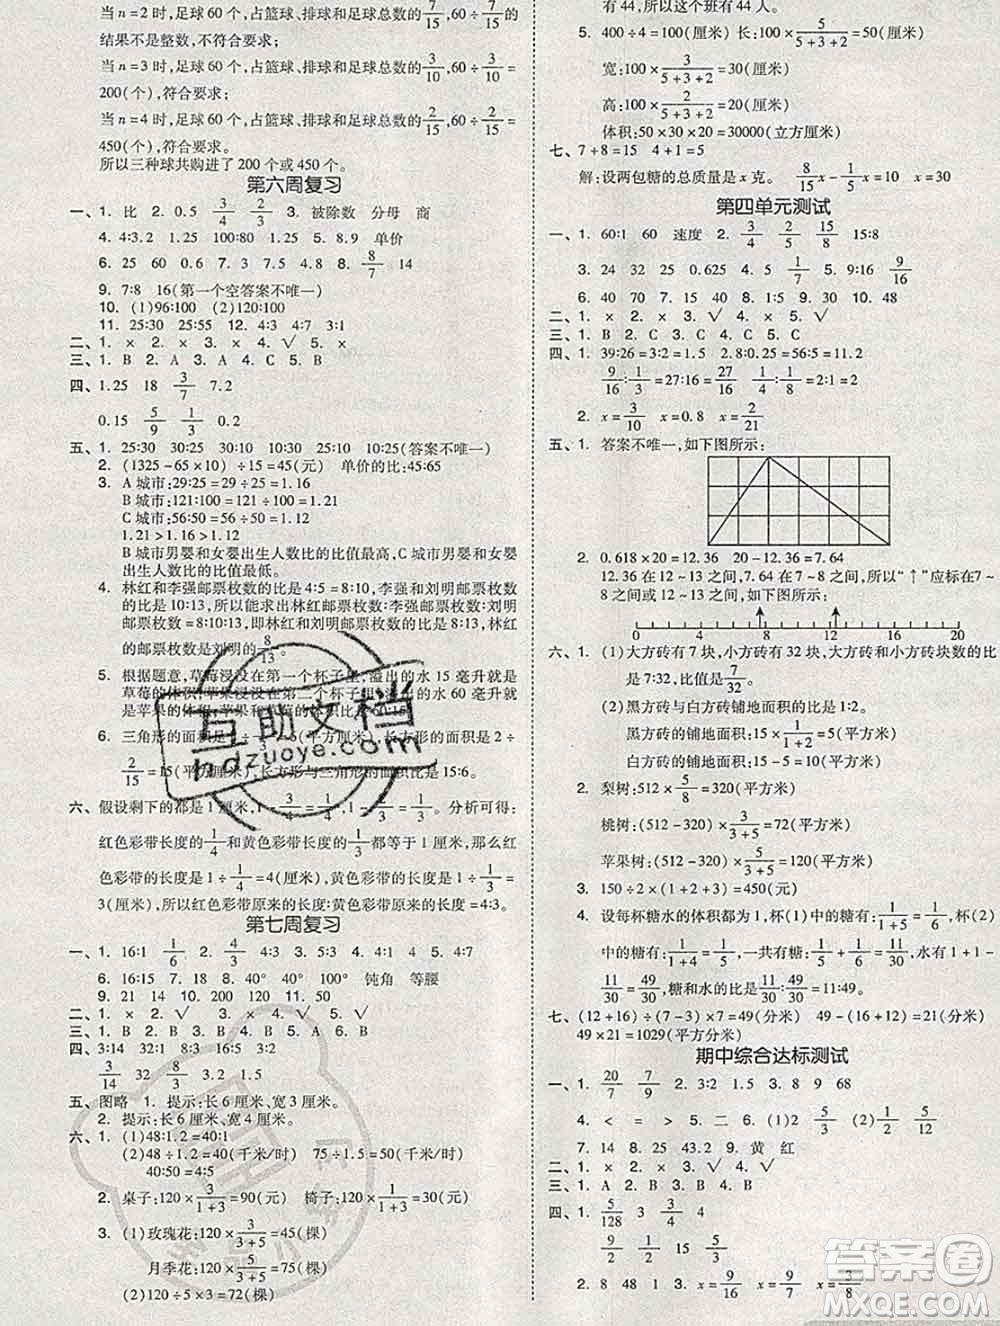 当 n=2 时,足球 60 个,占篮球、排球和足球总数的 7/15,60÷7/15的
结果不是整数,不符合要求;
当 n=3 时,足球 60 个,占篮球、排球和足球总数的 3/10,60÷3/10=
200(个),符合要求;
当 n=4 时,足球 60 个,占篮球、排球和足球总数的 2/15,60÷2/15=
450(个),符合要求。
所以三种球共购进了 200 个或 450 个。
第六周复习
一、1. 比 2. 0.5 3/4 2/3 3. 被除数 分母 商
4. 4∶3.2 1.25 100∶80 1.25 5. 8.9 单价
6. 25 60 0.6 7. 3 7.5 4.8 8. 8/7 14
9. 7∶8 16(第一个空答案不唯一)
10. (1)96∶100 (2)120∶100
11. 25∶30 25∶55 12. 4∶3 4∶7 3∶1
二、1. × 2. × 3. × 4. √ 5. ×
三、1. B 2. A 3. A 4. C 5. B
四、1.25 18 3/7 7.2
0.15 5/9 1/3 0.2
五、1. 25∶30 30∶25 10∶30 10∶25 10∶25(答案不唯一)
2. (1325-65×10)÷15=45(元) 单价的比:45∶65
3. A 城市:29∶25=29÷25=1.16
B 城市:121∶100=121÷100=1.21
C 城市:56∶50=56÷50=1.12
1.21>1.16>1.12
B 城市男婴和女婴出生人数比的比值最高,C 城市男婴和女婴
出生人数比的比值最低。
4. 林红和李强邮票枚数的比是 4∶5=8∶10,李强和刘明邮票枚数
的比是 10∶13,所以能求出林红邮票枚数∶李强邮票枚数∶刘明
邮票枚数=8∶10∶13,即林红和刘明邮票枚数的比是 8∶13,林红
的邮票枚数是刘明的 8/13。
5. 根据题意,草莓浸没在第一个杯子里,溢出的水 50 毫升就是
草莓的体积,苹果浸没在第二个杯子里,溢出的水 60 毫升就是
苹果的体积,
6. 三角形的面积
2/15=15(平方厘米),长方形与三角形的面积比是 15∶6。
六、假设剩下的都是 1 厘米,1-3/4=1/4,1-2/3=1/3。分析可得:
红色彩带长度的 1/4 和黄色彩带长度的 1/3 都是 1 厘米,所以红
色彩带的长度是 1÷1/4=4(厘米),黄色彩带的长度是 1÷1/3=
3(厘米),所以红色彩带原来的长度∶黄色彩带原来的长度=4∶3。
第七周复习
一、1. 16∶1 1/6 2. 4/3 4∶3 3. 5∶3 4. 4∶1 4 5. 4∶7
6. 16∶15 7. 18 8. 40° 40° 100° 钝角 等腰
9. 21 14 10. 200 120 11. 50
二、1. × 2. √ 3. × 4. × 5. √
三、1. B 2. B 3. C 4. B 5. A 6. B
四、3∶14 32∶1 8∶3 9∶2
3/14 32 8/3 9/2
五、图略 1. 提示:长 6 厘米、宽 3 厘米。
2. 提示:长 6 厘米、宽 4 厘米。
六、1. (1)48∶1.2=40∶1
(2)48÷1.2=40(千米/时) 75÷1.5=50(千米/时)
40∶50=4∶5
2. 桌子:120×3/(1+3)=90(元) 椅子:120×1/(1+3)=30(元)
3. (1)玫瑰花:120×3/(3+5)=45(棵)
月季花:120×5/(3+5)=75(棵)
(2)120÷5×3=72(棵)
有 44,所以这个班有 44 人。
5. 400÷4=100(厘米) 长:100×5/(5+3+2)=50(厘米)
宽:100×3/(5+3+2)=30(厘米)
高:100×2/(5+3+2)=20(厘米)
体积:50×30×20=30000(立方厘米)
七、7+8=15 4+1=5
解:设两包糖的总质量是 x 克。 8/15x-1/5x=10 x=30
第四单元测试
一、1. 60∶1 60 速度 2. 3/4 2/5 15/8 15∶8
3. 24 32 25 0.625 4. 5 1/7 5. 9∶16 9/16
6. 40 70 7. 15 8. 40 9. 1∶5 10. 48
二、1. √ 2. × 3. √ 4. × 5. √
三、1. B 2. C 3. C 4. B 5. C
四、1. 39∶26=3∶2=1.5 2.8∶0.05=56∶5=11.2
9/16∶1/3=27∶16=27/16 1/4∶1/8=2∶1=2
2. x=3/10 x=0.8 x=2/9
五、1. 答案不唯一,如下图所示:
2. 0.618×20=12.36 20-12.36=7.64
12.36 在 12~13 之间,7.64 在 7~8 之间,所以“↑”应标在
7~8 或 12~13 之间,如下图所示:
0 4 8 12 16 20
六、1. (1)大方砖有 7 块,小方砖有 32 块,大方砖和小方砖块数的比
是 7∶32,比值是 7/32。
(2)黑方砖与白方砖铺地面积的比是 1∶2。
黑方砖的铺地面积:15×1/(1+2)=5(平方米)
白方砖的铺地面积:15-5=10(平方米)
2. 梨树:512×5/8=320(平方米)
桃树:(512-320)×3/(3+5)=72(平方米)
苹果树:(512-320)×5/(3+5)=120(平方米)
3. 150÷2×(1+2+3)=450(千克)
4. 设每杯糖水的体积都是 1,杯(1)中的糖有:1×1/(1+5)=1/6,杯(2)
中的糖有:1×1/(1+4)=1/5,一共有糖:1/6+1/5=11/30,水有 1+1-
11/30=49/30,糖和水的比是 11/30∶49/30=11∶49。
七、(12+16)÷(7-3)×7=49(分米) 49-(12+16)=21(分米)
49×21=1029(平方分米)
期中综合达标测试
一、1. 20/7 7/9 2. 3∶2 1.5 3. 8 9 68
4. < = > 5. 二 二 6. (1)2 5/3 (2)3 9/5
7. 14 8. 25 43.2 9. 黄 红
二、1. × 2. × 3. × 4. √ 5. √
三、1. A 2. B 3. B 4. B 5. C
四、1. 5/128 3 3/4 4
9/2 6/5 15 5/3
2. 8 48 1 3. x=9/16 x=9/7 x=3/8
互助文档
hdzuoye.com
答案圈
MXQE.COM